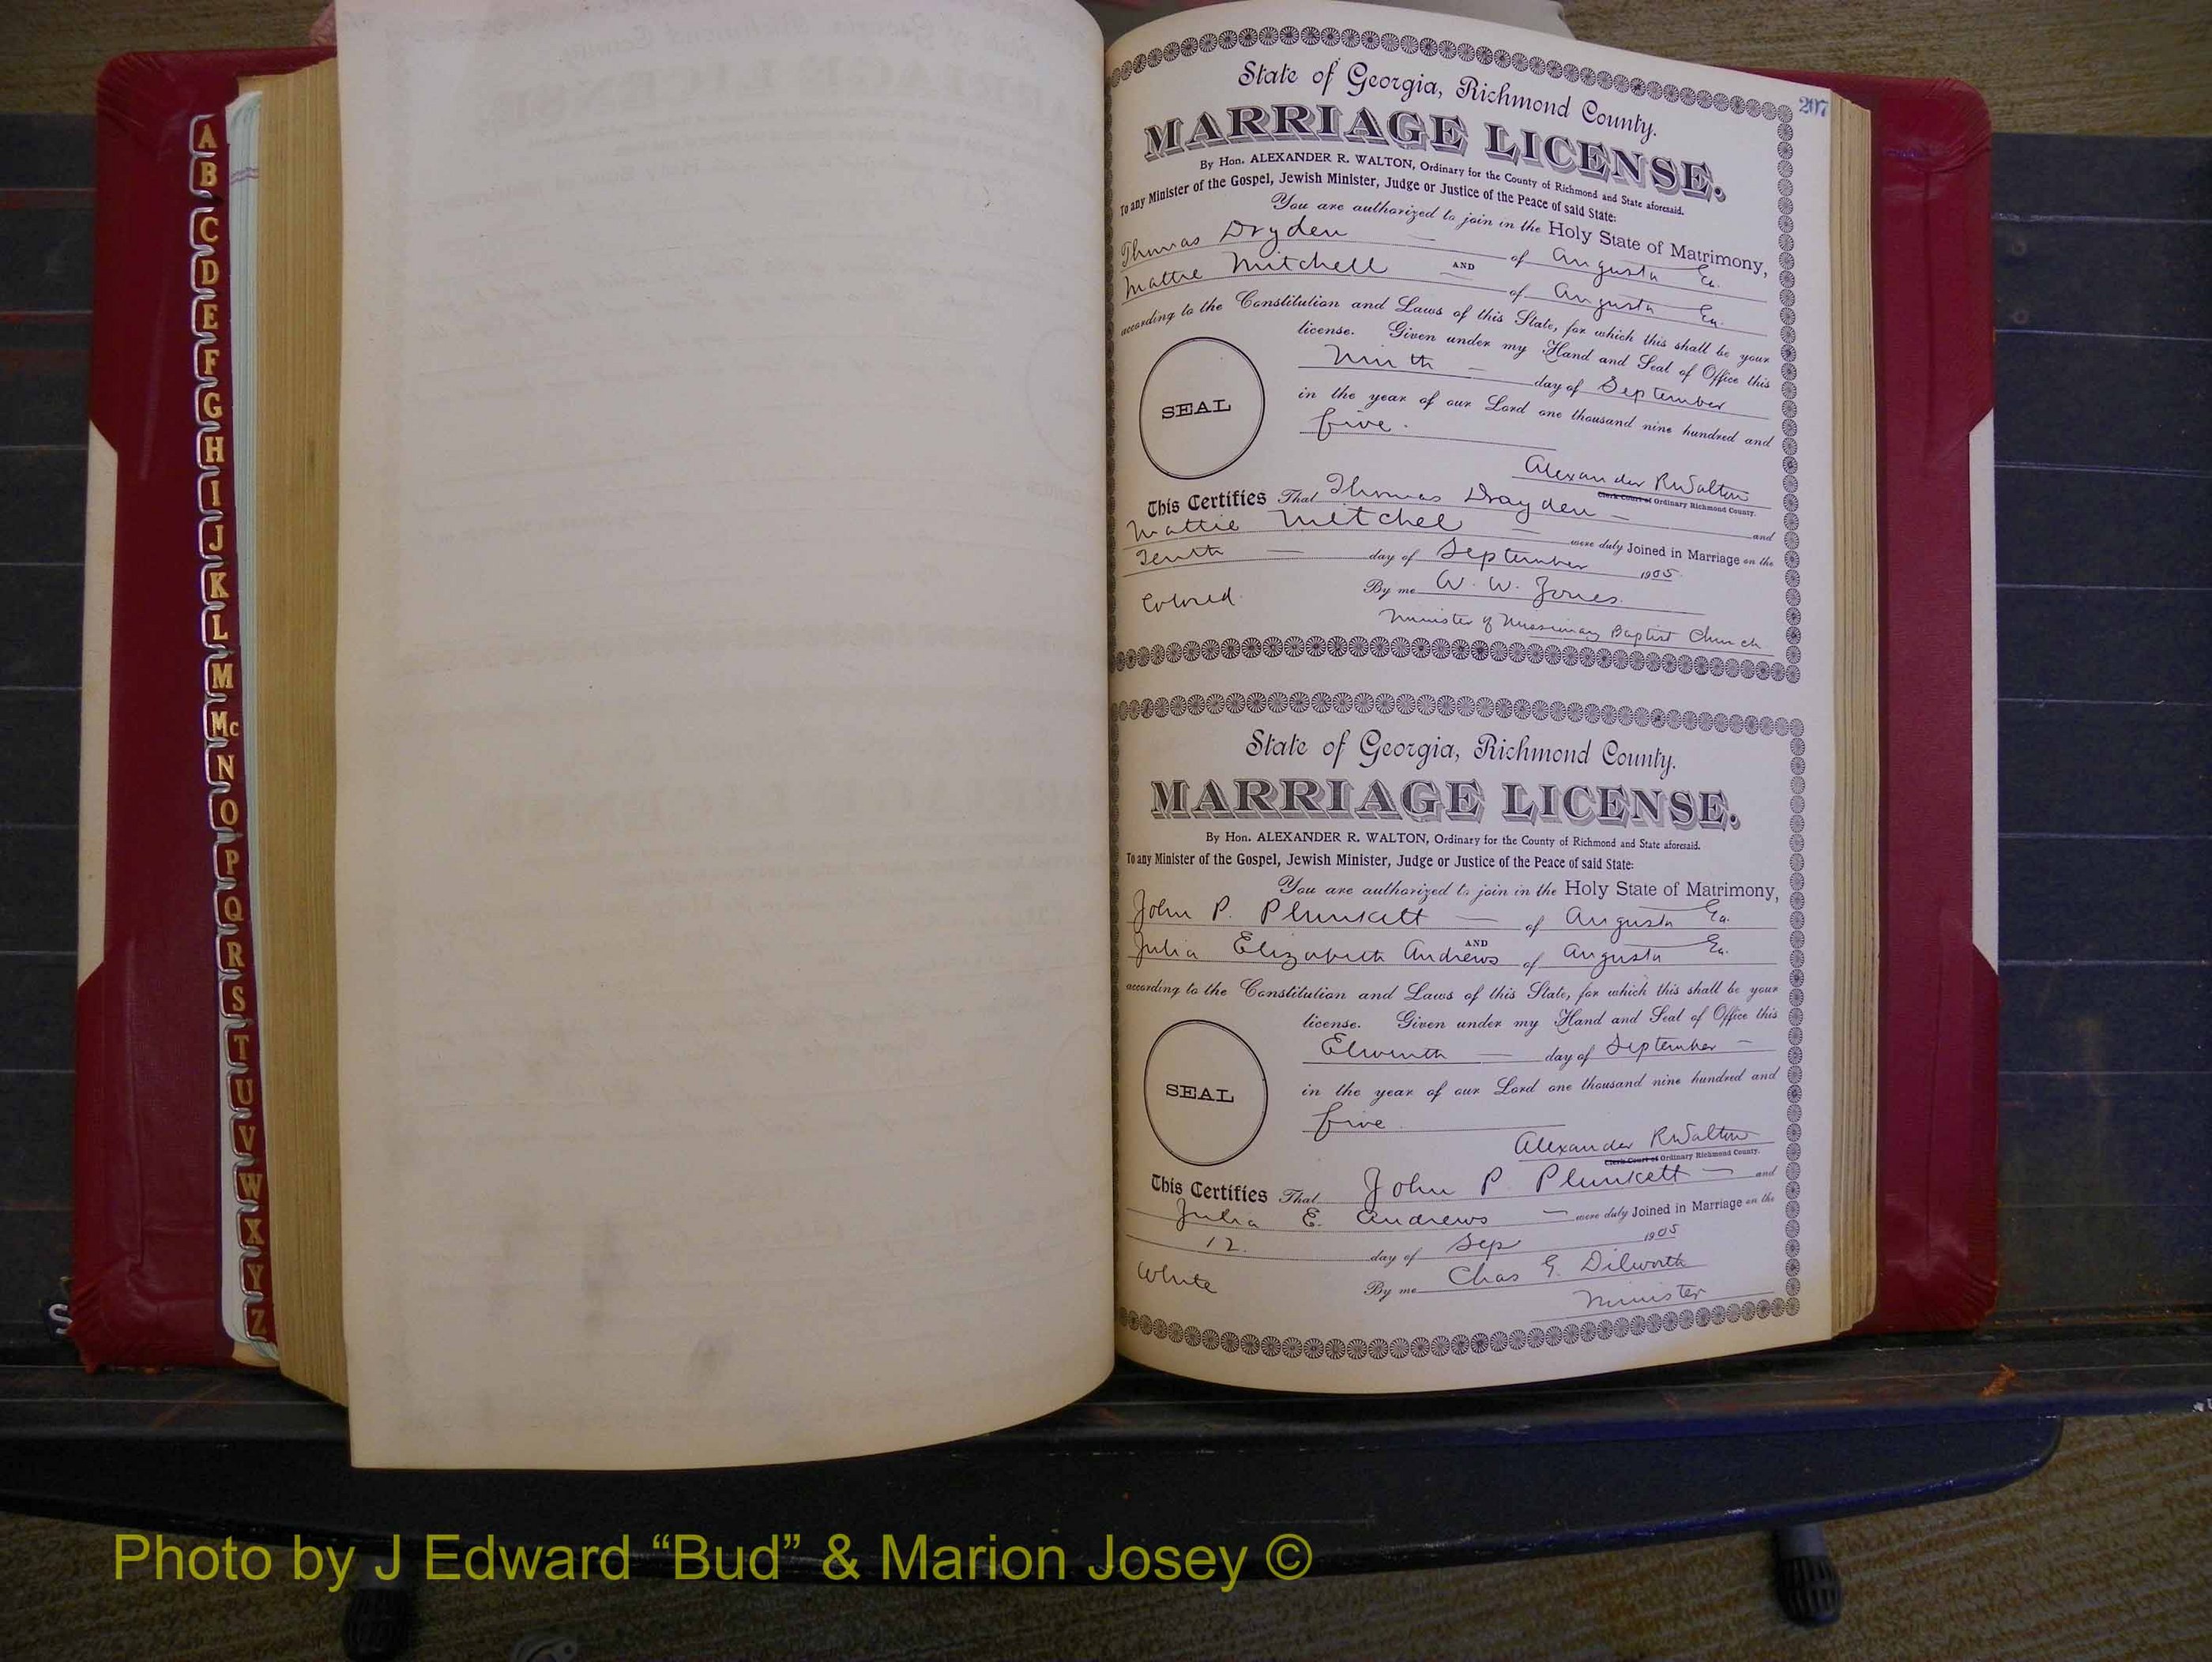 A
B
C
D
E
F
G
H
I
J
K
L
M
Mc
N
O
P
Q
R
S
T
U
V
W
X
Y
Z
207
State of Georgia, Richmond County.
MARRIAGE LICENSE.
By Hon. ALEXANDER R. WALTON, Ordinary for the County of Richmond and State aforesaid.
To any Minister of the Gospel, Jewish Minister, Judge or Justice of the Peace of said State:
You are authorized to join in the Holy State of Matrimony,
Thomas Dryden of Augusta Ga.
AND
Mattie Mitchell of Augusta Ga.
according to the Constitution and Laws of this State, for which this shall be your
license. Given under my Hand and Seal of Office this
Ninth day of September
SEAL
in the year of our Lord one thousand nine hundred and
five.
Alexander R Walton
Clerk Court of Ordinary Richmond County.
This Certifies That Thomas Drayden and
Mattie Mitchel were duly Joined in Marriage on the
Tenth day of September 1905.
Colored. By me W. W. Jones.
Minister of Missionary Baptist Church
State of Georgia, Richmond County.
MARRIAGE LICENSE.
By Hon. ALEXANDER R. WALTON, Ordinary for the County of Richmond and State aforesaid.
To any Minister of the Gospel, Jewish Minister, Judge or Justice of the Peace of said State:
You are authorized to join in the Holy State of Matrimony,
John P. Plunkett of Augusta Ga.
AND
Julia Elizabeth Andrews of Augusta Ga.
according to the Constitution and Laws of this State, for which this shall be your
license. Given under my Hand and Seal of Office this
Eleventh day of September
SEAL
in the year of our Lord one thousand nine hundred and
five.
Alexander R Walton
Clerk Court of Ordinary Richmond County.
This Certifies That John P. Plunkett and
Julia E. Andrews were duly Joined in Marriage on the
12. day of Sep 1905
White By me Chas G. Dilworth
Minister
Photo by J Edward “Bud” & Marion Josey ©